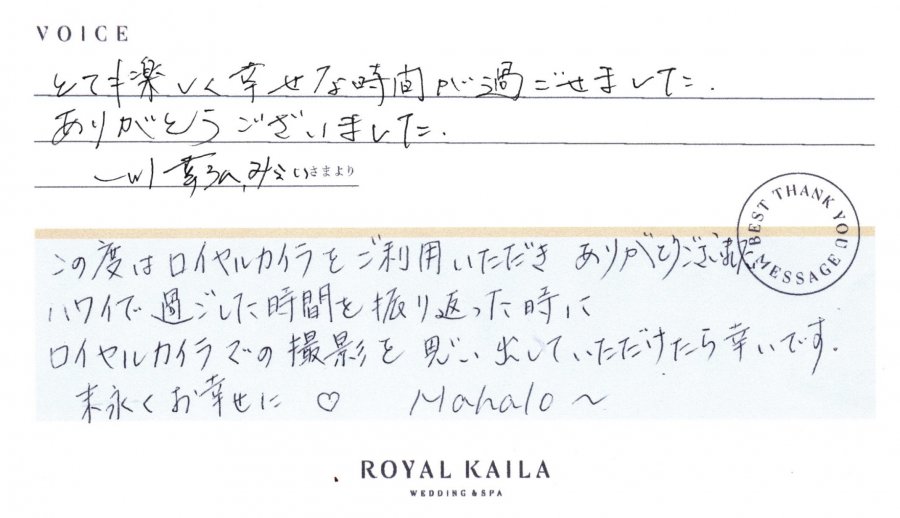 VOICE
とても楽しく幸せな時間が過ごせました.
ありがとうございました.
さまより
BEST THANK YOU MESSAGE
この度はロイヤルカイラをご利用いただき ありがとうございました.
ハワイで過ごした時間を振り返った時に
ロイヤルカイラでの撮影を思い出していただけたら幸いです.
末永くお幸せに ♡ Mahalo ~
ROYAL KAILA
WEDDING & SPA